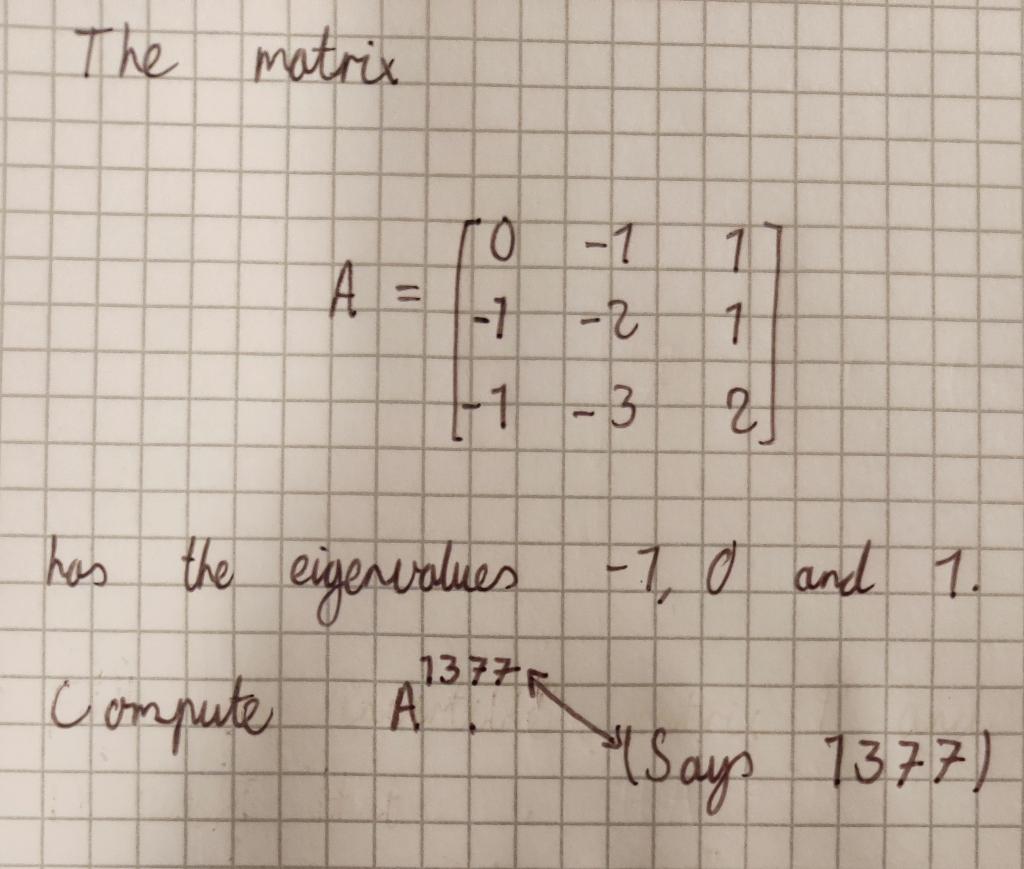 The matrix
A = [0 -1 1
-1 -2 1
-1 -3 2]
has the eigenvalues -1, 0 and 1.
Compute A^1377.
(Says 1377)